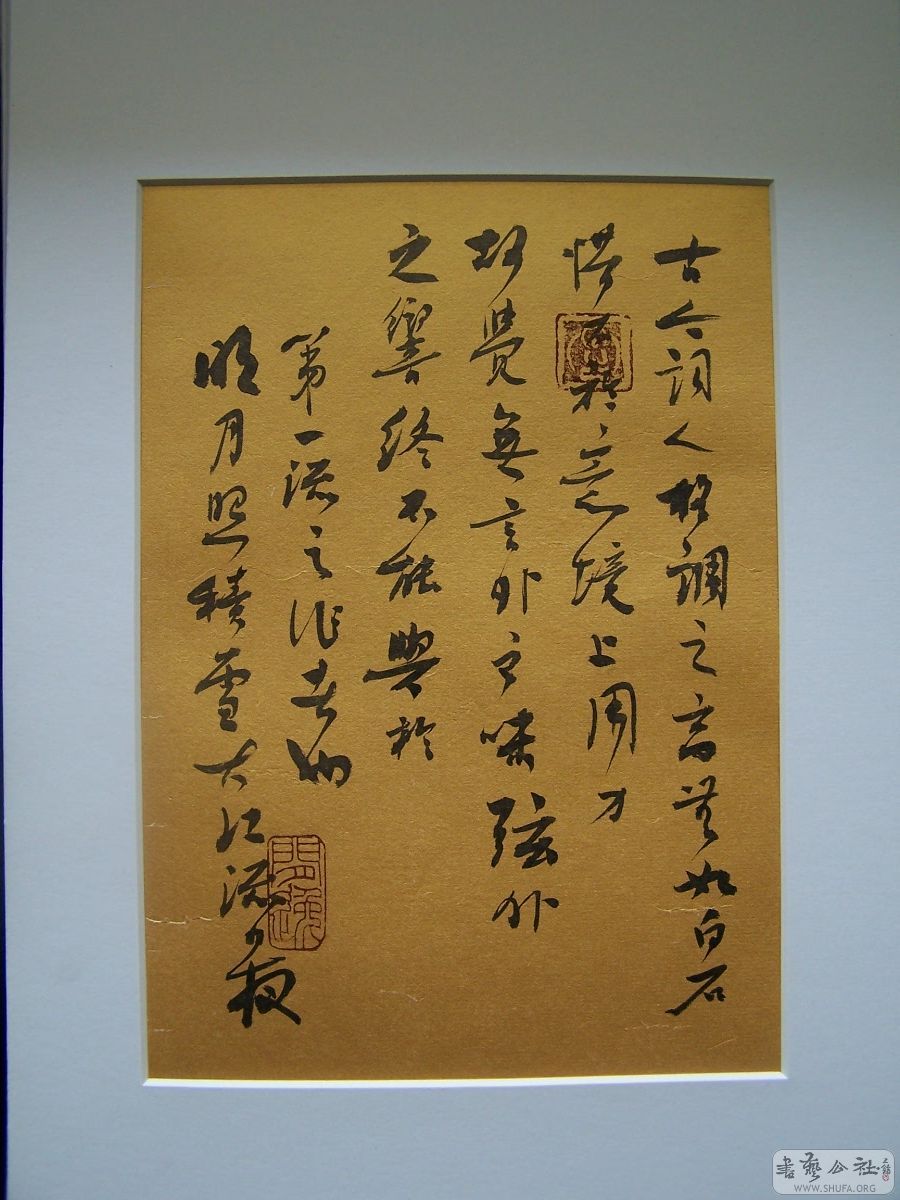 古今詞人格調之高無如白石
惜不於意境上用力
故覺無言外之味弦外
之響終不能與於
第一流之作者也
明月照積雪大江流日夜
書藝公社
WWW.SHUFA.ORG